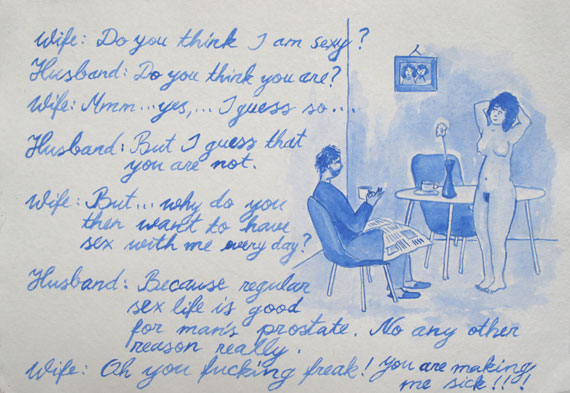 Wife: Do you think I am sexy?
Husband: Do you think you are?
Wife: Mmm...yes,... I guess so...
Husband: But I guess that
you are not.
Wife: But... why do you
then want to have
sex with me every day?
Husband: Because regular
sex life is good
for man's prostate. No any other
reason really.
Wife: Oh you fucking freak! You are making
me sick!!!